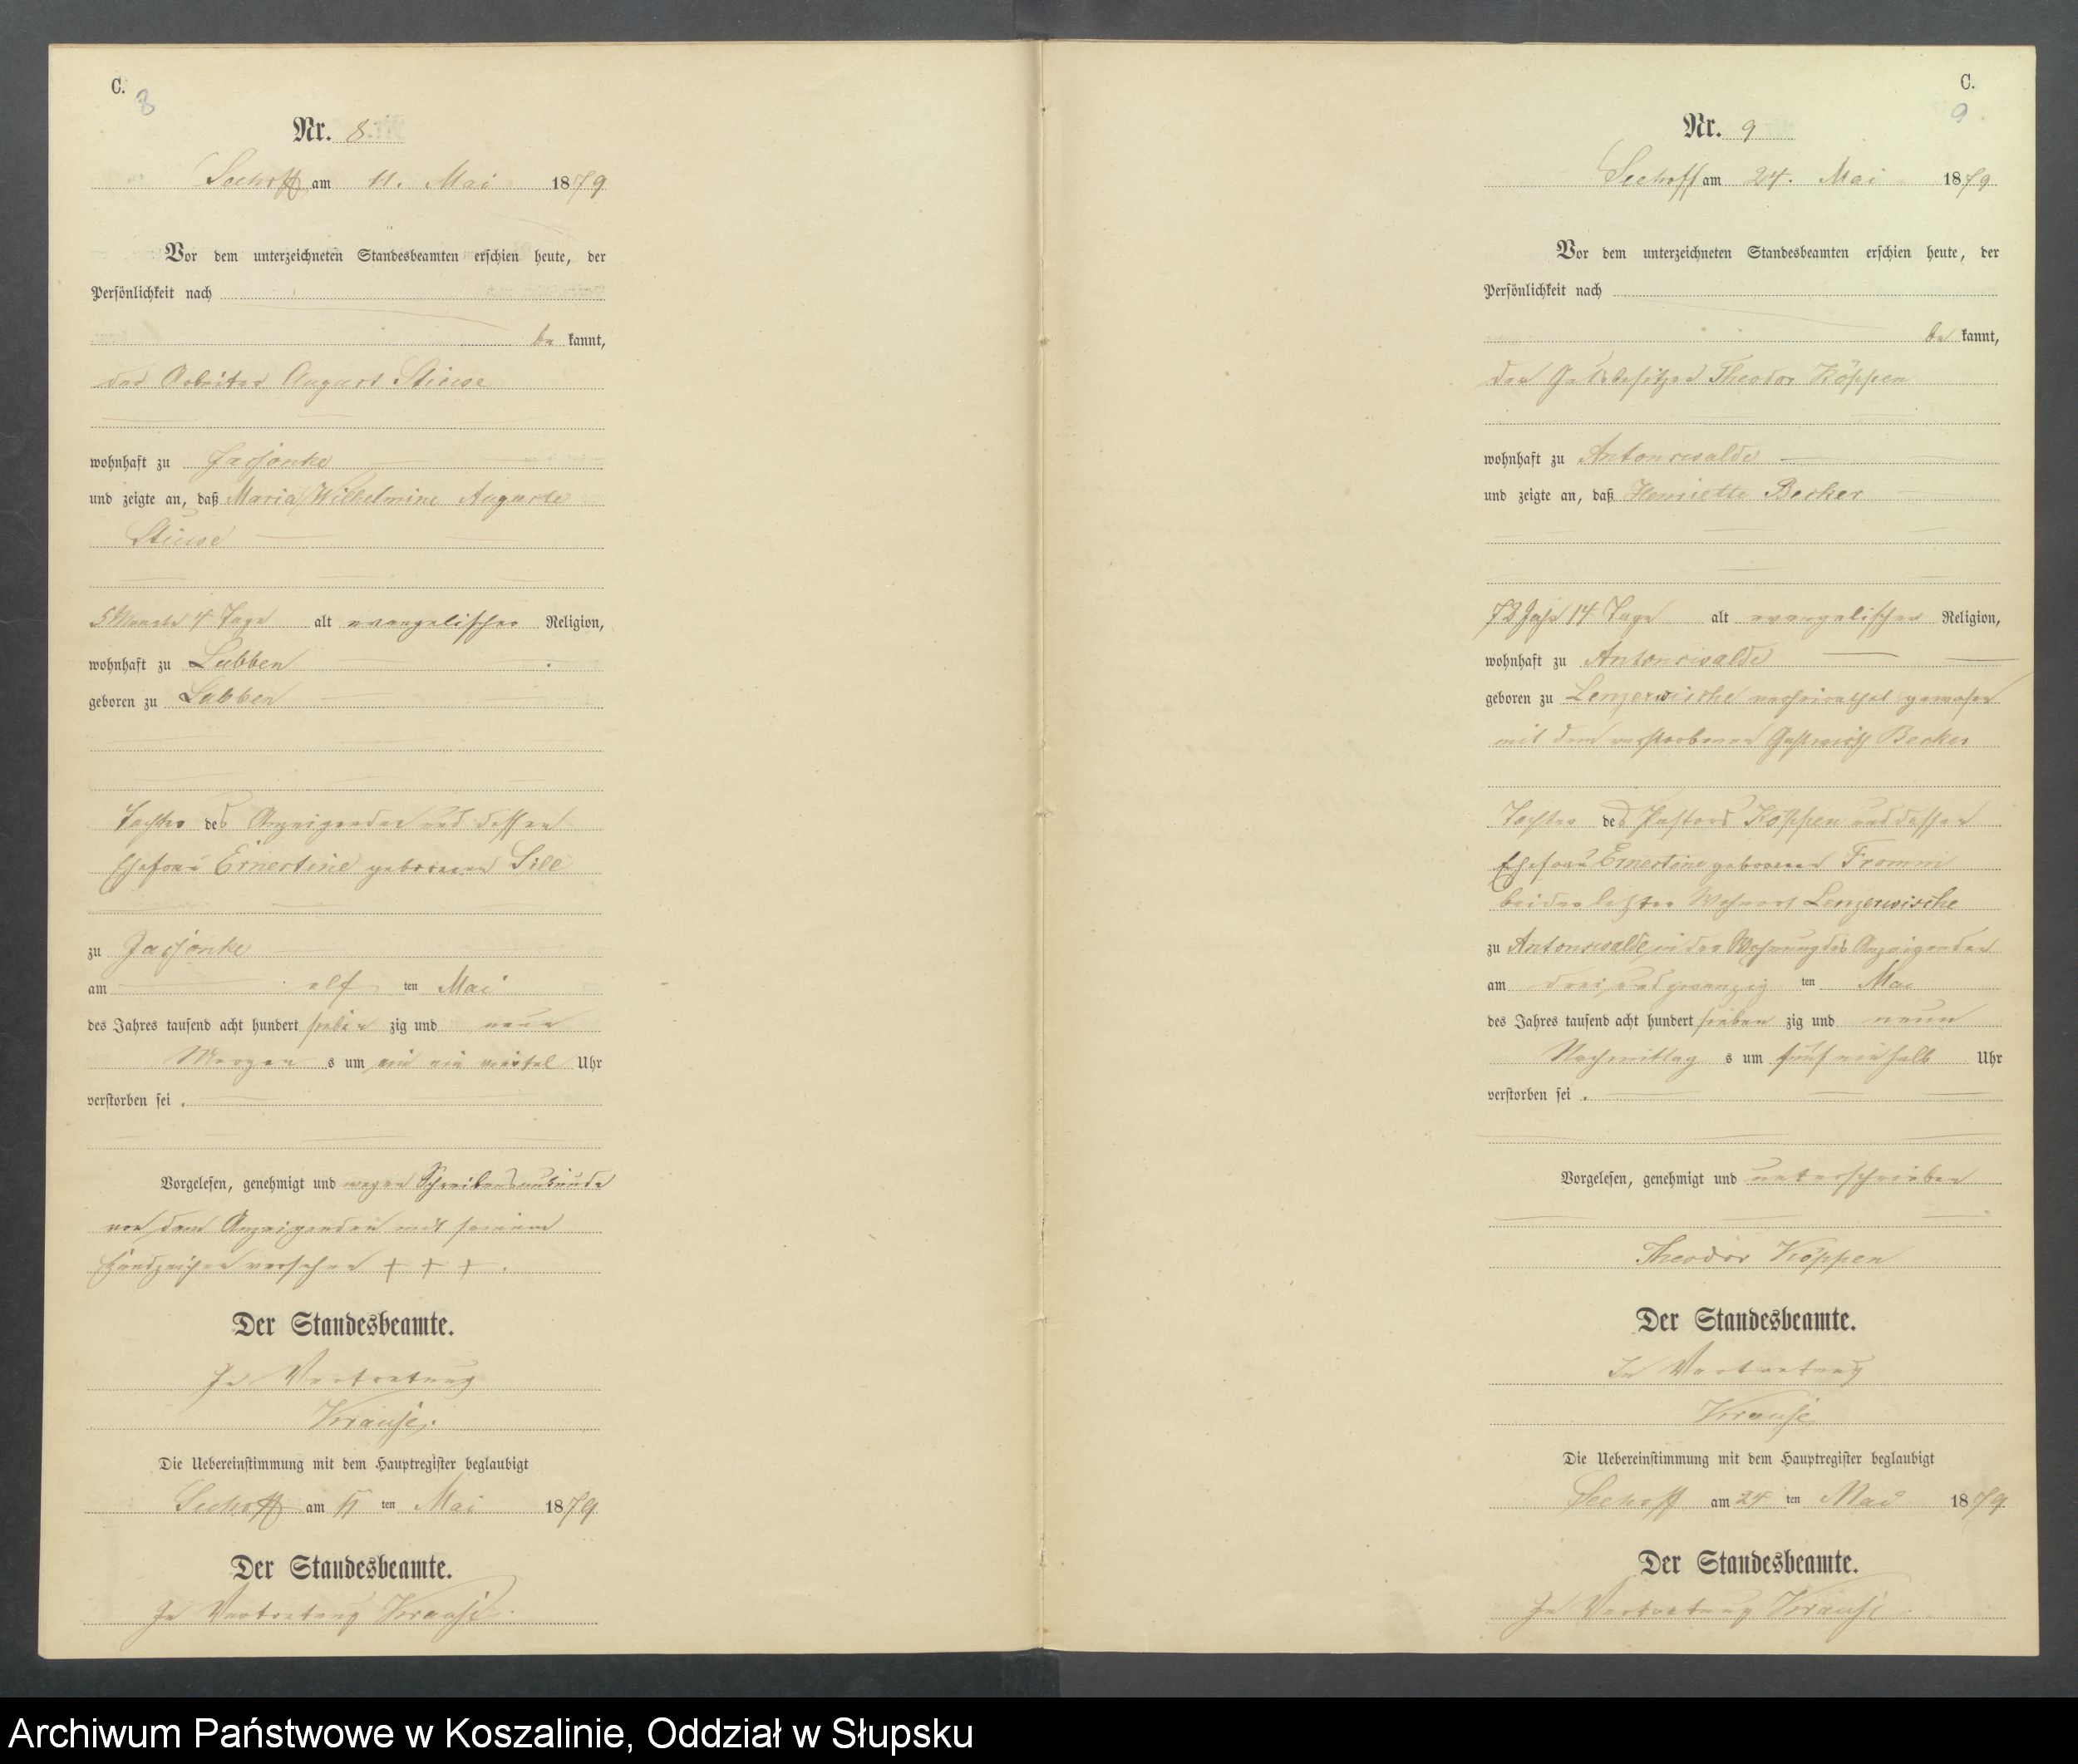 C.
8
Nr. 8
Seehoff am 11. Mai 1879
Vor dem unterzeichneten Standesbeamten erschien heute, der
Persönlichkeit nach
be kannt,
der Arbeiter August Stüwe
wohnhaft zu Jassonke
und zeigte an, daß Maria Wilhelmine Auguste
Stüwe
5 Monate 4 Tage alt evangelischer Religion,
wohnhaft zu Lubben
geboren zu Lubben
Tochter des Anzeigenden und dessen
Ehefrau Ernestine geborenen Sill
zu Jassonke
am elf ten Mai
des Jahres tausend acht hundert sieben zig und neun
Morgen s um ein ein viertel Uhr
verstorben sei .
Vorgelesen, genehmigt und wegen Schreibensunkunde
von dem Anzeigenden mit seinem
Handzeichen versehen + + + .
Der Standesbeamte.
In Vertretung
Krause.
Die Uebereinstimmung mit dem Hauptregister beglaubigt
Seehoff am 11 ten Mai 1879
Der Standesbeamte.
In Vertretung Krause.
C.
9.
Nr. 9
Seehoff am 24. Mai 1879
Vor dem unterzeichneten Standesbeamten erschien heute, der
Persönlichkeit nach
be kannt,
der Gutsbesitzer Theodor Köppen
wohnhaft zu Antonswalde
und zeigte an, daß Henriette Becker
73 Jahr 14 Tage alt evangelischer Religion,
wohnhaft zu Antonswalde
geboren zu Lenzerwische verheirathet gewesen
mit dem verstorbenen Gastwirth Becker
Tochter des Pastors Köppen und dessen
Ehefrau Ernestine geborenen Fromm
beider letzter Wohnort Lenzerwische
zu Antonswalde in der Wohnung des Anzeigenden
am drei und zwanzig ten Mai
des Jahres tausend acht hundert sieben zig und neun
Nachmittag s um fünf ein halb Uhr
verstorben sei .
Vorgelesen, genehmigt und unterschrieben
Theodor Köppen
Der Standesbeamte.
In Vertretung
Krause
Die Uebereinstimmung mit dem Hauptregister beglaubigt
Seehoff am 24 ten Mai 1879.
Der Standesbeamte.
In Vertretung Krause.
Archiwum Państwowe w Koszalinie, Oddział w Słupsku